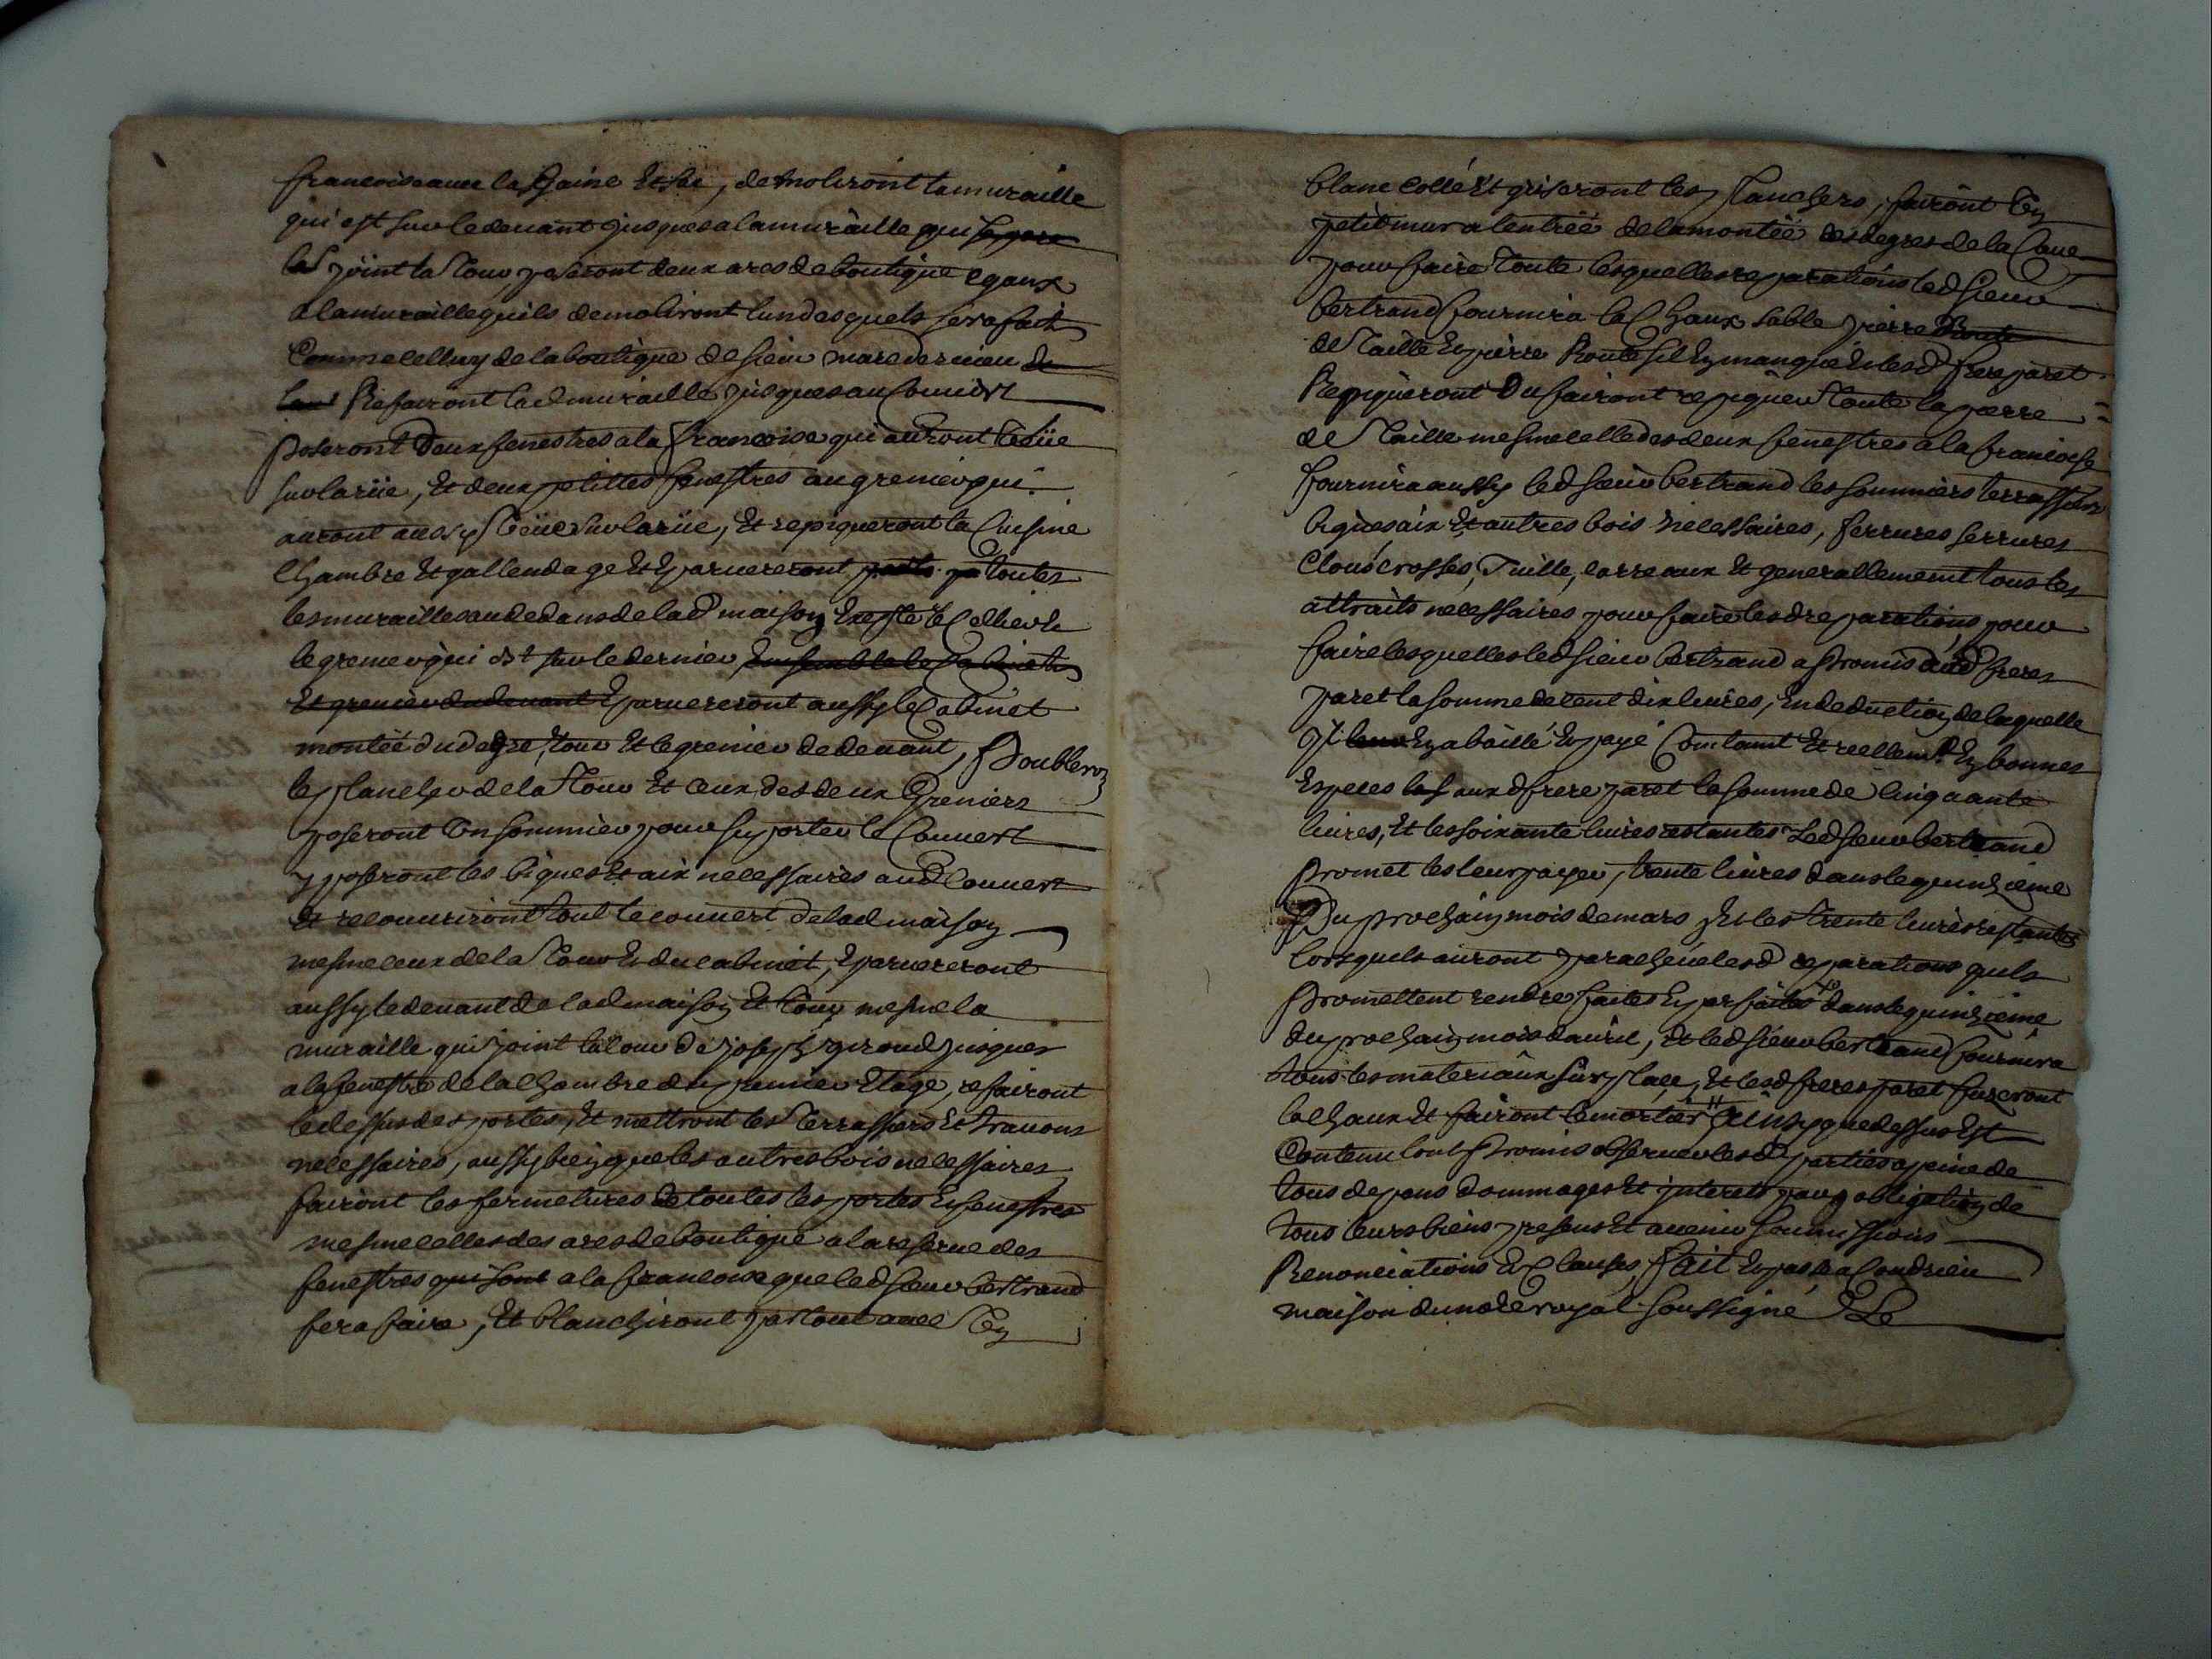 francoise avec la gaine et sie, demoliront la muraille
qui est sur le devant jusques a la muraille qui separe
la joint la Cour, poseront deux arcs de boutique egaux
a la muraille quils demoliront lun desquels sera fait
Comme celluy de la boutique de sieur marc
Refairont lad muraille jusques au Couvert
poseront Deux fenestres a la francoise qui auront Veüe
sur la rüe, Et deux petittes fenestres au grenier qui
auront aussy Veüe sur la rüe, Et repiqueront la Cuisine
Chambre Et gallendage Et Eparvereront toutes
les murailles au dedans de lad maison Excepté le Cellier Et
le grenier qui est sur le dernier Ensemble le Cabinet
Et grenier du devant Eparvereront aussy le Cabinet
montée du degre, tour Et le grenier de devant, Doubleron
le plancher de la Tour Et Ceux des deux Greniers
poseront Un sommier pour suporter le Couvert
y poseront les bigues Et aix necessaires aud Couvert
Et recouvriront tout le couvert de lad maison
mesme ceux de la Tour Et du cabinet, Eparvereront
aussy le devant de lad maison Et Cour mesme la
muraille qui joint la Cour de joseph giroud jusques
a la fenestre de la Chambre du premier Etage, refairont
le dessus des portes, Et mettront les Terrassiers Et travons
necessaires, aussy bien que les autres bois necessaires
fairont les fermetures de toutes les portes Et fenestres
mesme celles des arcs de boutique a la reserve des
fenestres qui sont a la francoise que led sieur bertrand
fera faire, Et blanchiront par tout avec Un
blanc collé Et griseront les planchers, fairont Un
petit mur a lentréé de la montéé des degres de la Cave
pour faire Toute lesquelles reparations led sieur
bertrand fournira la Chaux sable pierre Route
de Taille Et pierre Route sil En manque Et lesd frere paret
Repiqueront Ou fairont repiquer Toute la pierre
de Taille mesme celle des deux fenestres a la francoise
fournira aussy led sieur bertrand les sommiers terrassiers
bigues aix Et autres bois necessaires, ferrures serrures
Clous crosses, Tuille, carreaux Et generallement tous les
attraits necessaires pour faire lesd reparations pour
faire lesquelles led sieur bertrand a promis aud freres
paret la somme de cent dix livres, En deduction de laquelle
Il leur En a baillé Et payé Comtant Et reellemt En bonnes
Especes aux d frere paret la somme de Cinquante
livres, Et les soixante livres restantes Led sieur bertrand
promet les leur payer, trente livres dans le quinzieme
Du prochain mois de mars Et les trente livres restantes
lors quils auront parachevé lesd reparations quils
promettent rendre faites Et parfaites dans le quinzieme
du prochain mois davril, Et led sieur bertrand fournira
tous les materiaux sur place, Et lesd freres paret fuzeront
la Chaux Et fairont le mortier Ainsy que dessus Est
Contenu Tout promis observer lesd parties a peine de
tous depans dommages Et interets par obligation de
tous leurs biens presens Et avenir soumissions
Renonciations Et Clauses, fait Et passé a Condrieu
maison du nore royal soussigné Le